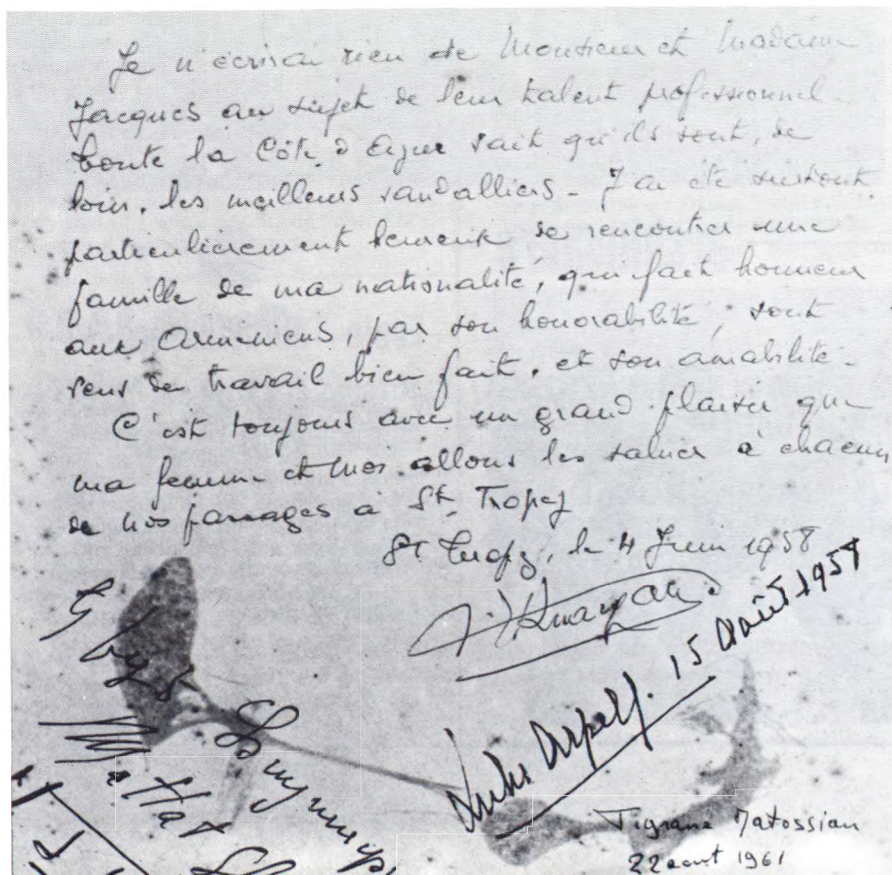 Je n'écrirai rien de Monsieur et Madame
Jacques au sujet de leur talent professionnel.
Toute la Côte d'Azur sait qu'ils sont, de
loin, les meilleurs sandalliers - J'ai été surtout
particulièrement heureux de rencontrer une
famille de ma nationalité, qui fait honneur
aux Arméniens, par son honorabilité, sont
sens du travail bien fait, et son amabilité -
C'est toujours avec un grand plaisir que
ma femme et moi allons les saluer à chacun
de nos passages à St. Tropez
St Tropez, le 4 Juin 1958
15 Août 1958
Tigrane Matossian
22 aout 1961